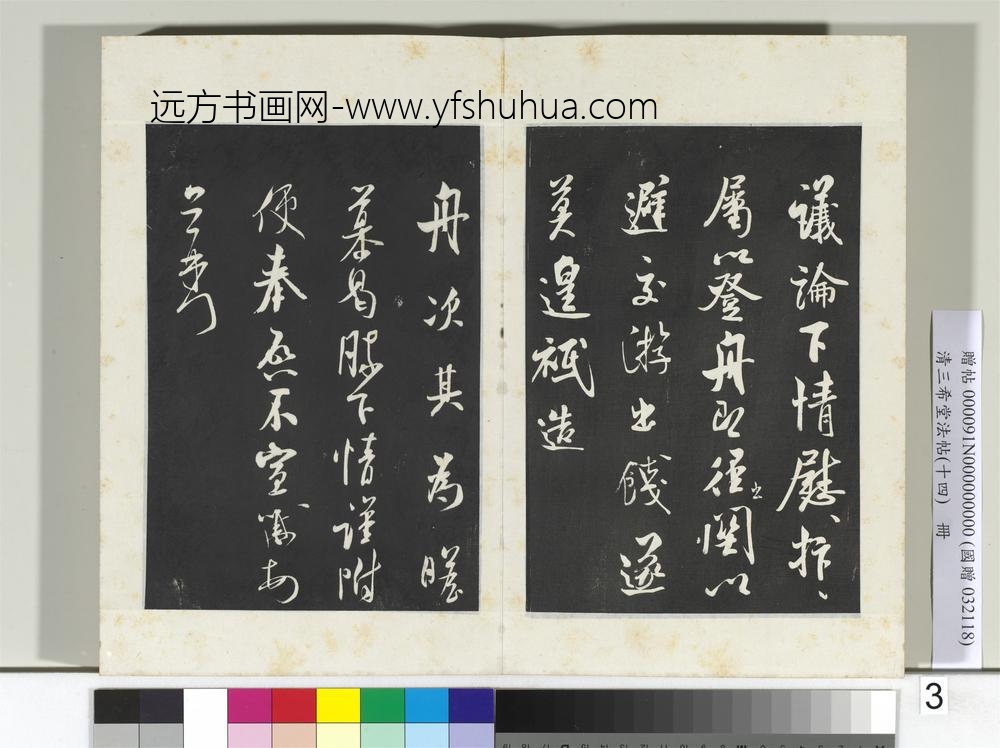 远方书画网-www.yfshuhua.com
議論下情慰抃、
屬以登舟即径出関以
避交游出餞遂
莫遑祇造
舟次其為瞻
慕曷勝下情謹附
便奉啓不宣
贈帖 000091N000000000 (國贈 032118)
清三希堂法帖(十四) 冊
3